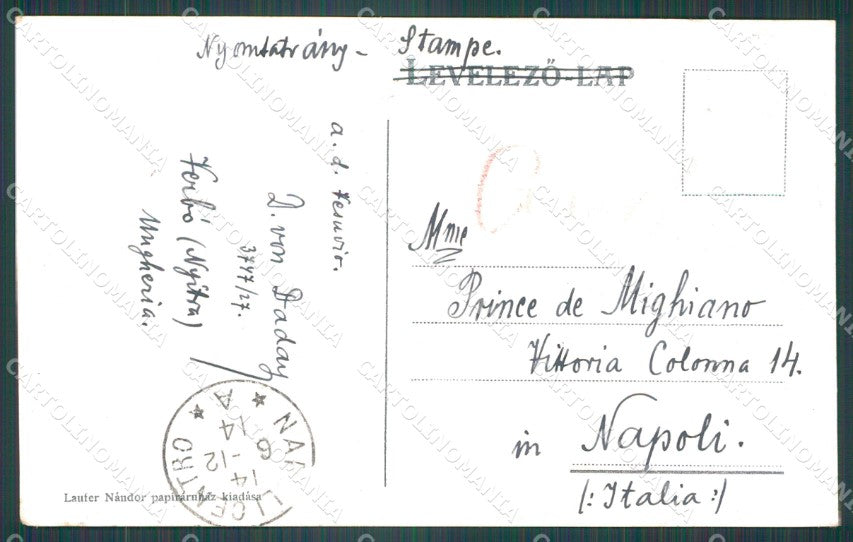 Nyomtatvány - Stampe.
LEVELEZŐ-LAP
a. d. Vesuvio.
D. von Daday
3747/27.
Verbó (Nyitra)
Ungheria.
Mme
Prince de Mighiano
Vittoria Colonna 14.
in Napoli.
(: Italia :)
Lauter Nándor papíráruház kiadása
CARTOLINOMANIA